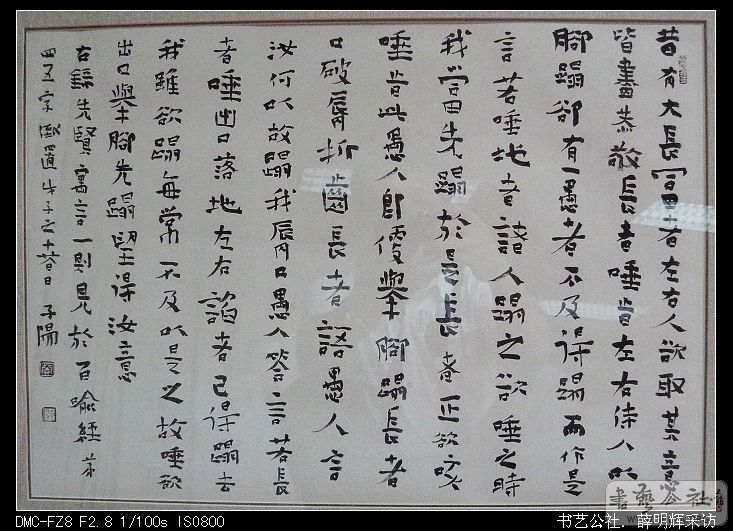 昔有大長富者左右人欲取其意
皆盡恭敬長者唾旹左右侍人以
腳蹋卻有一愚者不及得蹋而作是
言若唾地者諸人蹋之欲唾之時
我當先蹋於是長者正欲咳
唾旹此愚人即便舉腳蹋長者
口破脣折齒長者語愚人言
汝何以故蹋我脣口愚人答言若長
者唾出口落地左右諂者已得蹋去
我雖欲蹋每常不及以是之故唾欲
出口舉腳先蹋望得汝意
右錄先賢寓言一則見於百喻經第
四五字 子之十 日 子陽
DMC-FZ8 F2.8 1/100s ISO800
书艺公社 薛明辉采访